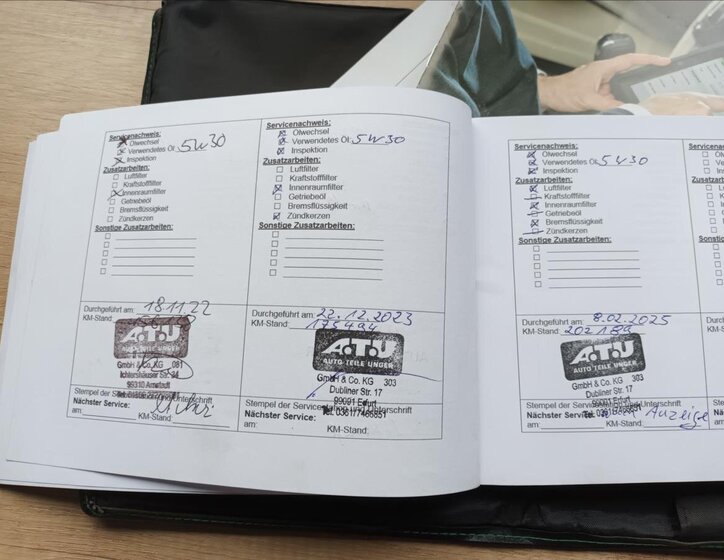 Servicenachweis:
Ölwechsel
Verwendetes Öl: 5W30
Inspektion
Zusatzarbeiten:
Luftfilter
Kraftstofffilter
Innenraumfilter
Getriebeöl
Bremsflüssigkeit
Zündkerzen
Sonstige Zusatzarbeiten:
Durchgeführt am: 18.11.22
KM-Stand:
A.T.U
AUTO TEILE UNGER
GmbH & Co. KG 081
Ichtershäuser Str.
99310 Arnstadt
Stempel der Unterschrift
Nächster Service:
am: KM-Stand:
Servicenachweis:
Ölwechsel
Verwendetes Öl: 5W30
Inspektion
Zusatzarbeiten:
Luftfilter
Kraftstofffilter
Innenraumfilter
Getriebeöl
Bremsflüssigkeit
Zündkerzen
Sonstige Zusatzarbeiten:
Durchgeführt am: 22.12.2023
KM-Stand: 175494
A.T.U
AUTO TEILE UNGER
GmbH & Co. KG 303
Dubliner Str. 17
99091 Erfurt
Stempel der Unterschrift
Tel. 0361/7466851
Nächster Service:
am: KM-Stand:
Servicenachweis:
Ölwechsel
Verwendetes Öl: 5W30
Inspektion
Zusatzarbeiten:
Luftfilter
Kraftstofffilter
Innenraumfilter
Getriebeöl
Bremsflüssigkeit
Zündkerzen
Sonstige Zusatzarbeiten:
Durchgeführt am: 8.02.2025
KM-Stand: 202189
A.T.U
AUTO TEILE UNGER
GmbH & Co. KG 303
Dubliner Str. 17
99091 Erfurt
Stempel der Unterschrift
Nächster Service: Anzeige
am: KM-Stand: